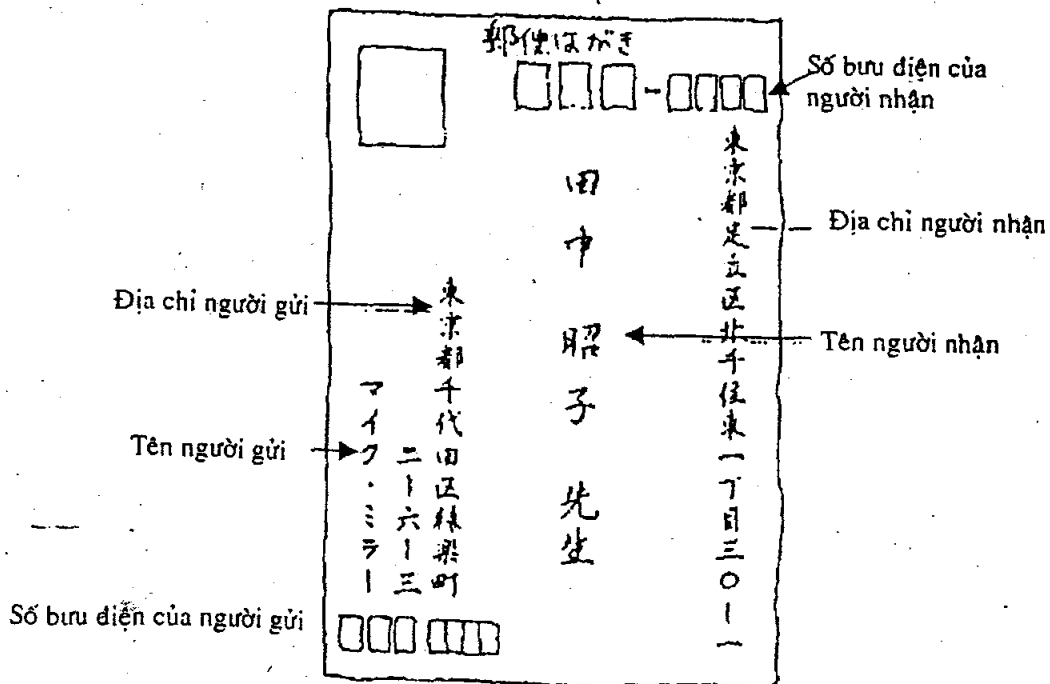 郵便はがき
Số bưu điện của
người nhận
東京都足立区北千住東一丁目三〇ー一
Địa chỉ người nhận
田中 昭子 先生
Tên người nhận
Địa chỉ người gửi
東京都千代田区猿楽町
二ー六ー三
マイク・ミラー
Tên người gửi
Số bưu điện của người gửi